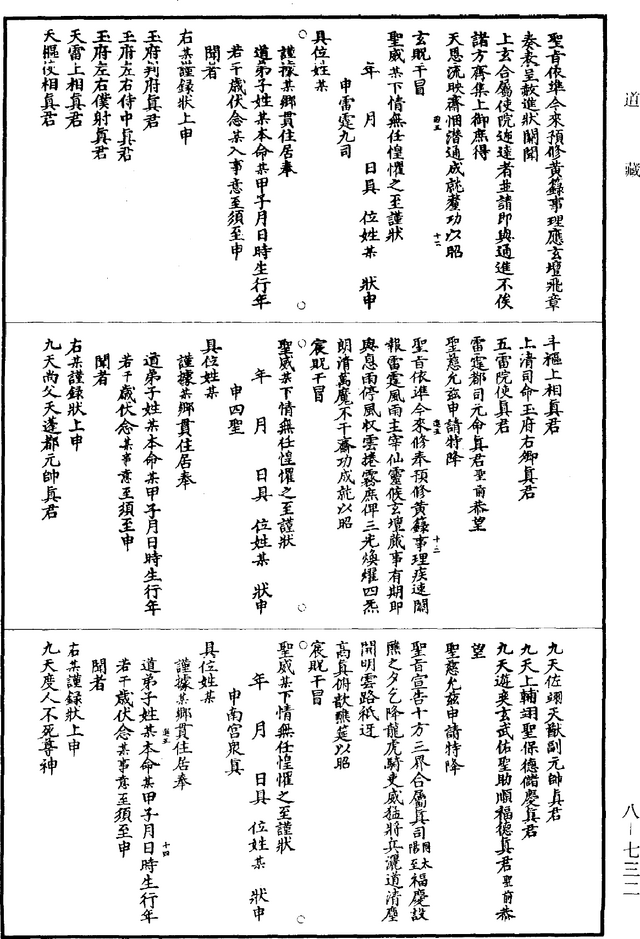 道藏
聖旨依準今來預修黃籙事理應玄壇飛章
奏表呈歎進狀關聞
上玄合屬使院遞達者並請即與通進不俟
諸方齊集上御庶得
天恩流映齋悃潛通成就勝功以昭
玄貺干冒
聖威某下情無任惶懼之至謹狀
年 月 日具 位姓某 狀申
申雷霆九司
具位姓某
謹據某鄉貫住居奉
道弟子姓某本命某甲子月日時生行年
若干歲伏念某入事意至須至申
聞者
右某謹錄狀上申
玉府判府真君
玉府左右侍中真君
玉府左右僕射真君
天雷上相真君
天樞使相真君
斗樞上相真君
上清司命玉府右卿真君
五雷院使真君
雷霆都司元命真君聖前恭望
聖慈允茲申請特降
聖旨依準今來修奉預修黃籙事理疾速關
報雷霆風雨主宰仙靈候玄壇蕆事有期即
與息雨停風收雲捲霧庶俾三光煥耀四炁
朗清萬魔不干齋功成就以昭
宸貺干冒
聖威某下情無任惶懼之至謹狀
年 月 日具 位姓某 狀申
申四聖
具位姓某
謹據某鄉貫住居奉
道弟子姓某本命某甲子月日時生行年
若干歲伏念某事意至須至申
聞者
右某謹錄狀上申
九天尚父天蓬都元帥真君
九天佐翊天猷副元帥真君
九天上輔翊聖保德儲慶真君
九天遊奕玄武佑聖助順福德真君聖前恭
望
聖慈允茲申請特降
聖旨宣告十方三界合屬真司同太陽至福慶設
醮之夕乞降龍虎騎吏威猛將兵灑道清塵
開明雲路祇迓
高真俯歆醮筵以昭
宸貺干冒
聖威某下情無任惶懼之至謹狀
年 月 日具 位姓某 狀申
申南宮眾真
具位姓某
謹據某鄉貫住居奉
道弟子姓某本命某甲子月日時生行年
若干歲伏念某事意至須至申
聞者
右某謹錄狀上申
九天度人不死尊神
八—七三二